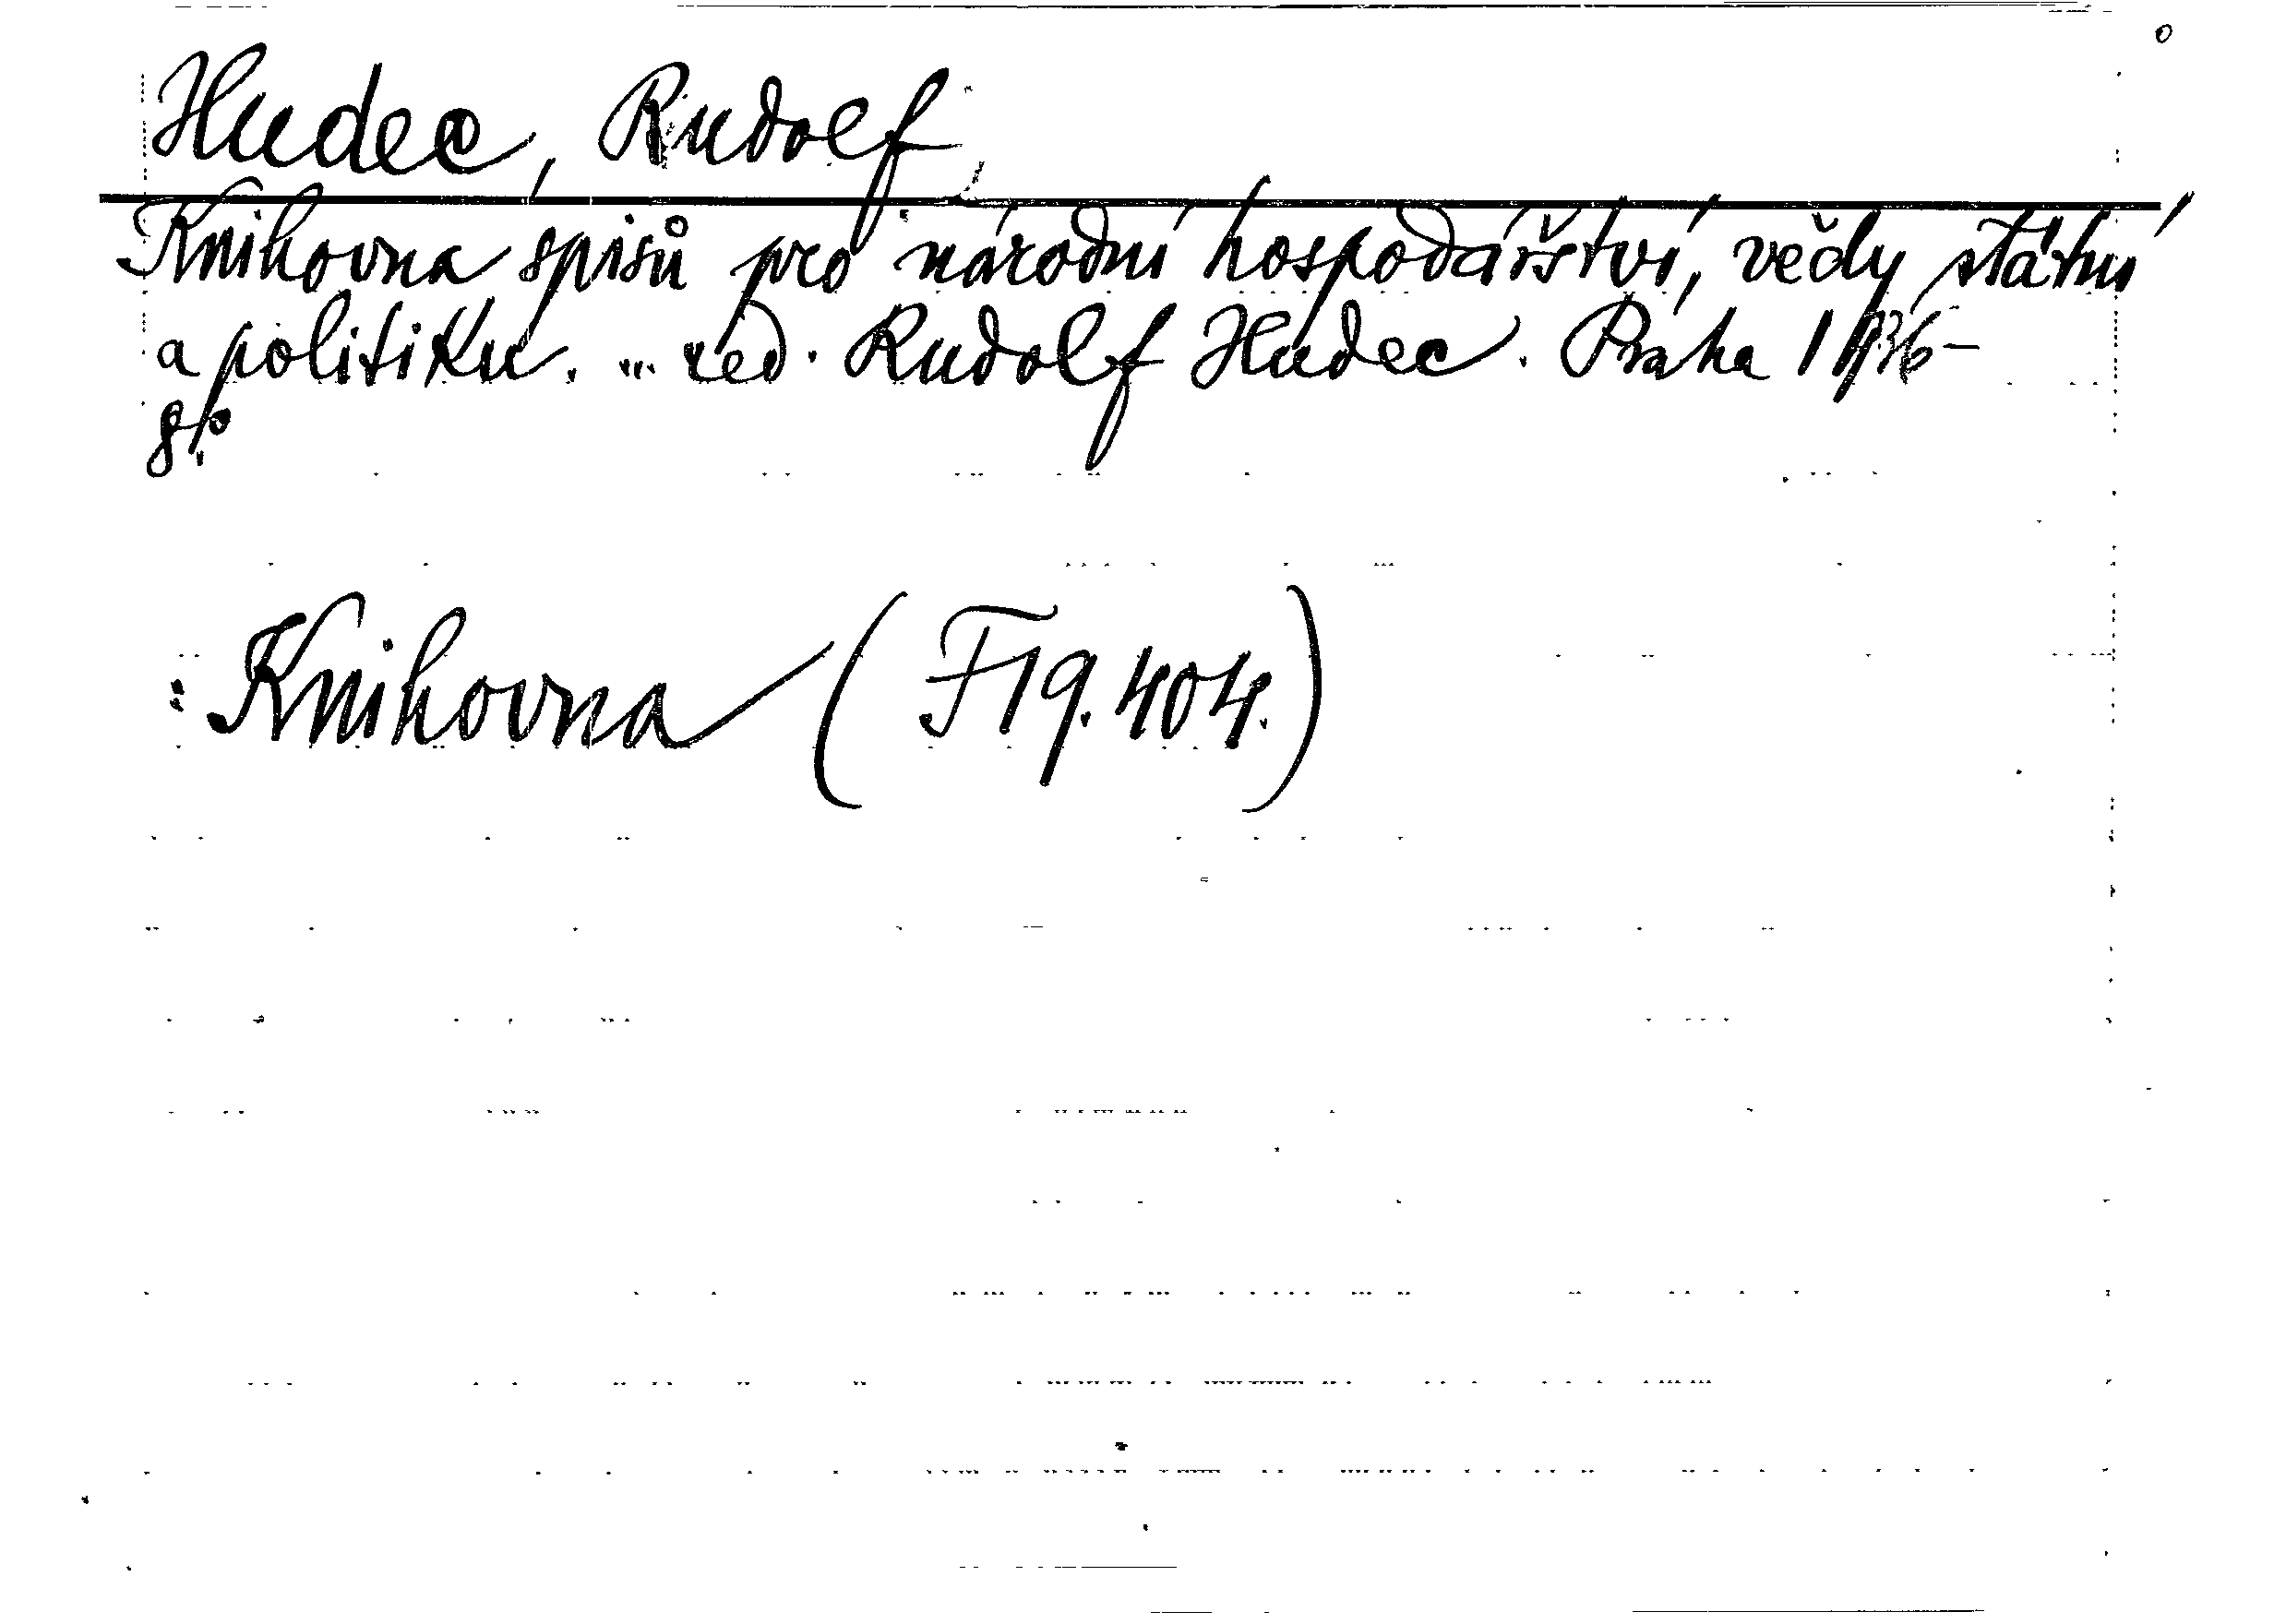 Hudec, Rudolf
Knihovna spisů pro národní hospodářství, vědy státní
a politiku. ... red. Rudolf Hudec. Praha 1936-
8°.
: Knihovna (F19.404.)